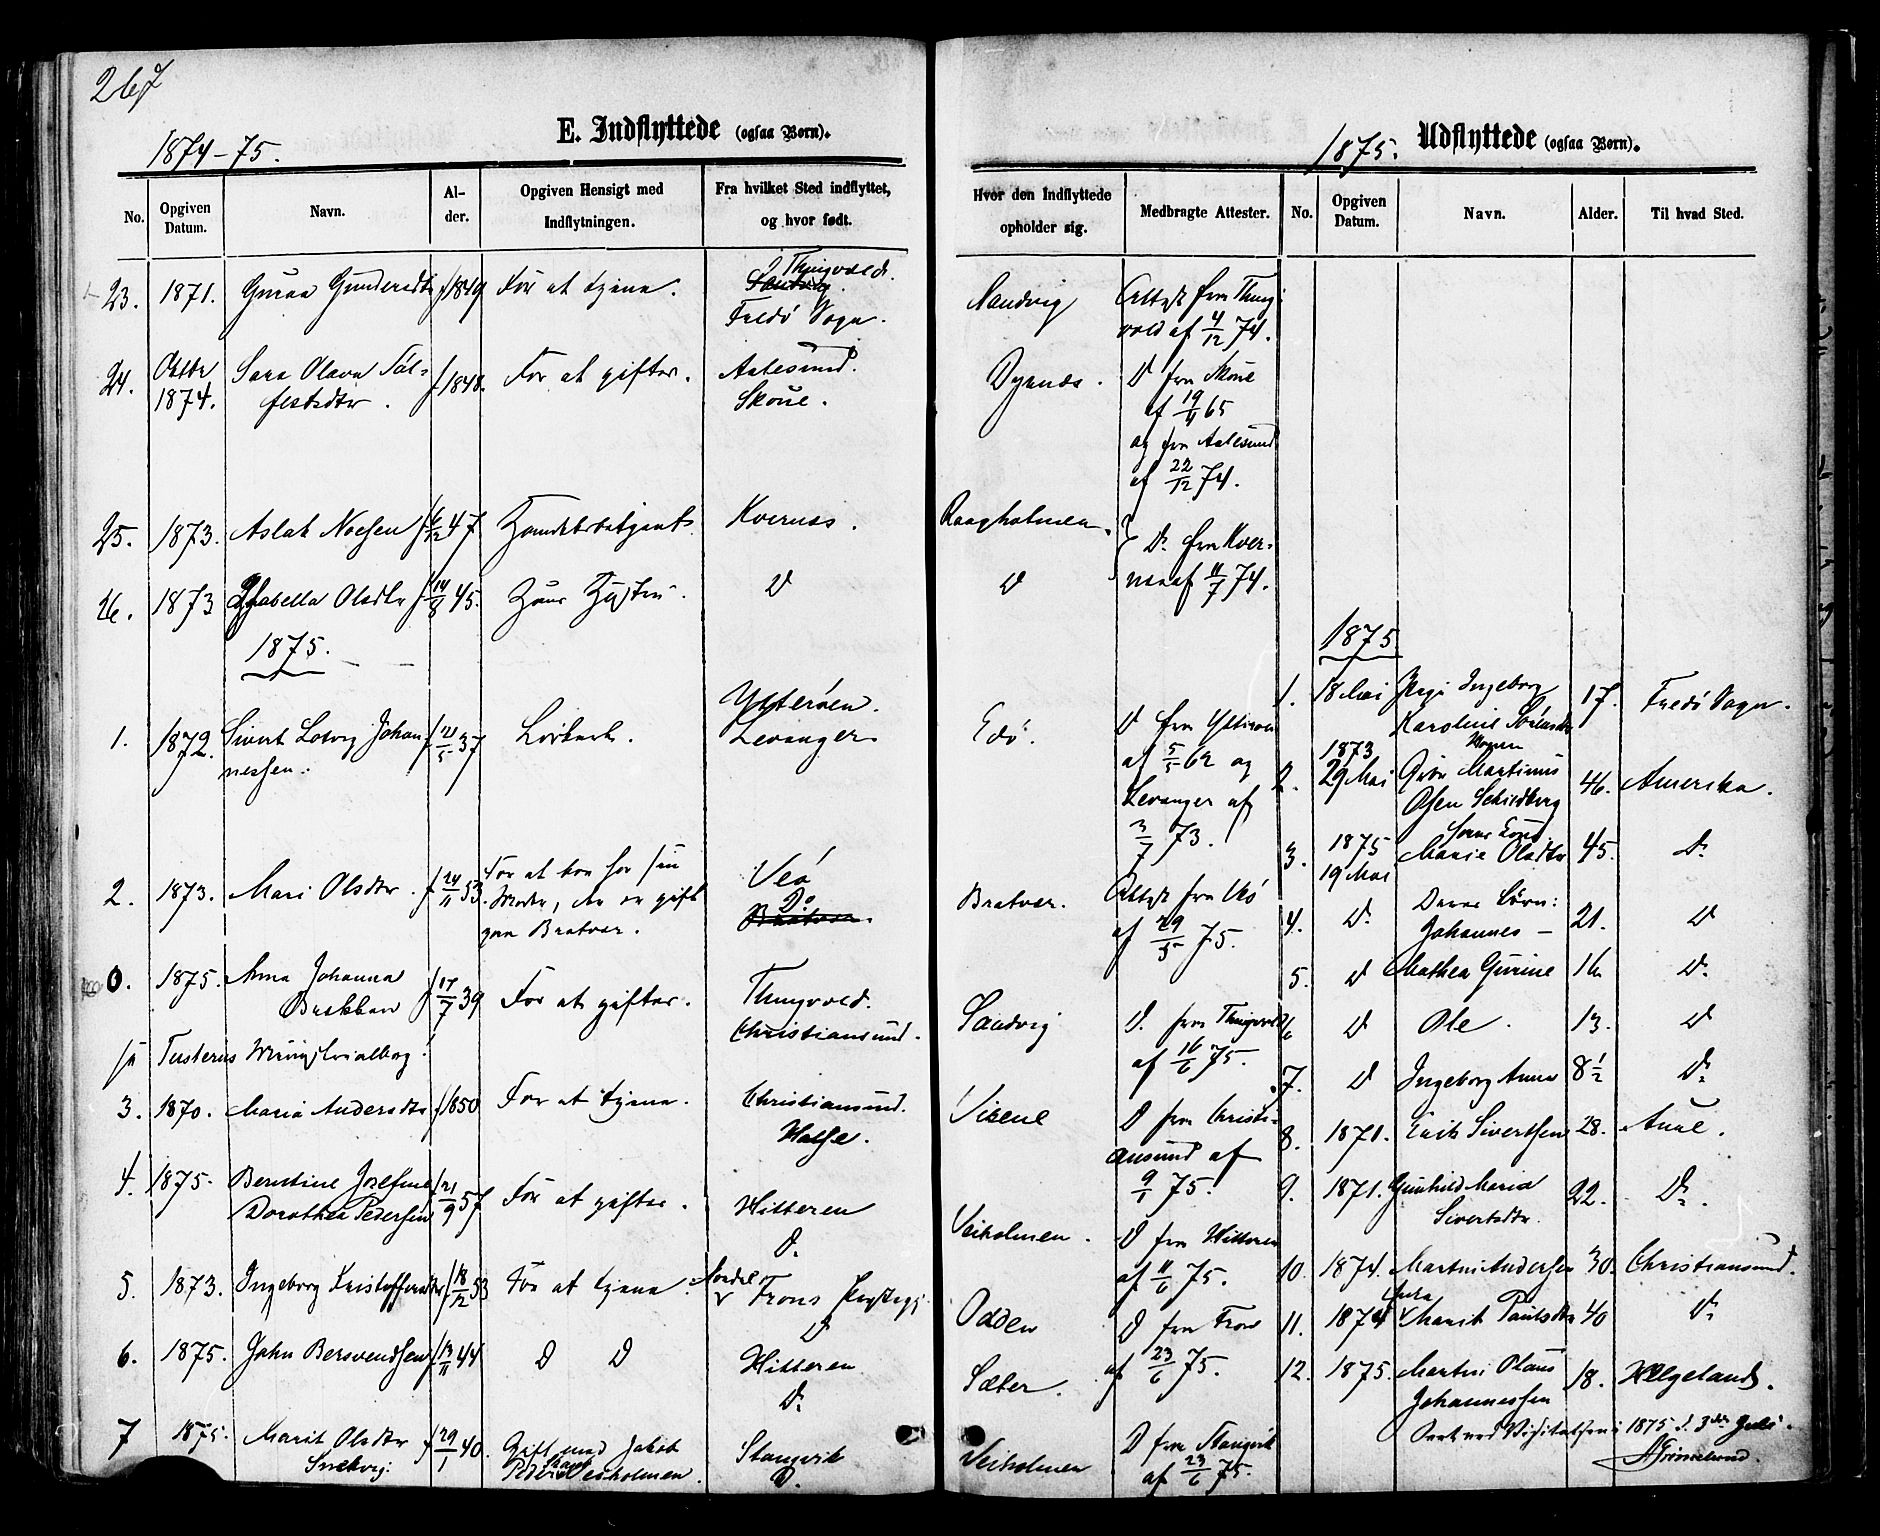 267
1874-75.
E. Indflyttede (ogsaa Børn).
No.
Opgiven Datum.
Navn.
Alder.
Opgiven Hensigt med Indflytningen.
Fra hvilket Sted indflyttet, og hvor født.
23. 1871. Guraa Gundersdtr f 1849 For at tjene. Thingvold. Fredö Sogn.
24. Oktbr 1874. Sara Olava f 1848. For at giftes. Aalesund. Skoue.
25. 1873. Aslak Noesen 47 Kvernes.
26. 1873 Isabella Olsdtr f 14/8 45. Hans Hustru. D
1875.
1. 1872. Sivert Lotvig Johannessen. f 21/5 37 Ytterøen. Levanger
2. 1873. Mari Olsdtr. f 24/11 53. For at bo hos sin Moder, der er gift paa Bratvær. Veö Do
0. 1875. Anna Johanna Brekken f 17/7 39 For at giftes. Thingvold. Christiansund.
paa Tusterns
3. 1870. Maria Andersdtr f 1850 For at tjene. Christiansund. Halse.
4. 1875. Berntine Josefine Dorothea Pedersen f 21/9 57 For at giftes. Hitteren D.
5. 1873. Ingeborg Kristoffersdtr f 18/12 53 For at tjene. Fröns D
6. 1875. John Bersvendsen f 13/11 44 D D Hitteren D.
7 1875. Marit Olsdtr f 29/1 40. Gift med Jakob Veiholmen. Stangvik D.
Udflyttede (ogsaa Børn).
1875.
Hvor den Indflyttede opholder sig.
Medbragte Attester.
No.
Opgiven Datum.
Navn.
Alder.
Til hvad Sted.
Sandvig Attest fra Thingvold af 4/12 74.
Dyrnes. D fra Skoue af 19/4 65 og fra Aalesund af 22/12 74.
Raagholmen. D. fra Kvernes af 11/7 74.
D
1875
Edö. D fra Ytterøen af 5/5 62 og Levanger af 3/7 73.
Bratvær. Attest fra Veö af 29/5 75.
Sandvig D. fra Thingvold af 16/6 75.
Virene D fra Christiansund af 9/1 75.
Veiholmen. D fra Hitteren af 11/6 75.
Odden D fra Fröe af 23/6 75.
Sæter.
Veiholmen D fra Stangvik af 23/6 75.
1. 18 Mai Ingeborg Karoline 17. Fredö Sogn.
2. 1873 29 Mai Martinus Olsen Schildberg 46. Amerika.
3. 1875 19 Mai hans Kone Marie Olsdtr 45. D.
4. D. Deres Börn: Johannes – 21. D
5. D Mathea Gurine 16 D.
6 D Ole. 13. D
7. D Ingeborg Anna 8 1/2 D.
8. 1871. Erik Sivertsen 28. Aure.
9. 1871. Gunhild Maria Sivertsdtr. 22. D.
10. 1874. Martin Andersen 30. Christiansund.
11. 1874 Marit Paulsdtr 40 D.
12. 1875. Martin Olaus Johannessen 18. Helgeland.
ved Visitatsen i 1875 d. 3die Juli.
Grimelund.